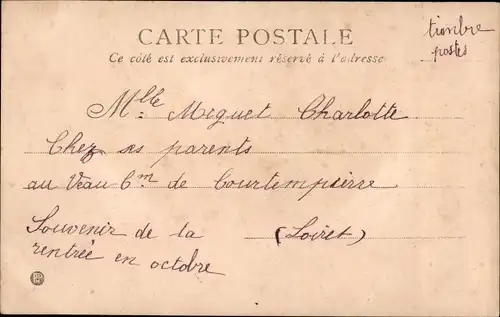 CARTE POSTALE
Ce côté est exclusivement réservé à l'adresse
timbre
postes
Mlle Meguet Charlotte
Chez ses parents
au Veau Cm de Courtempierre
(Loiret)
Souvenir de la
rentrée en octobre